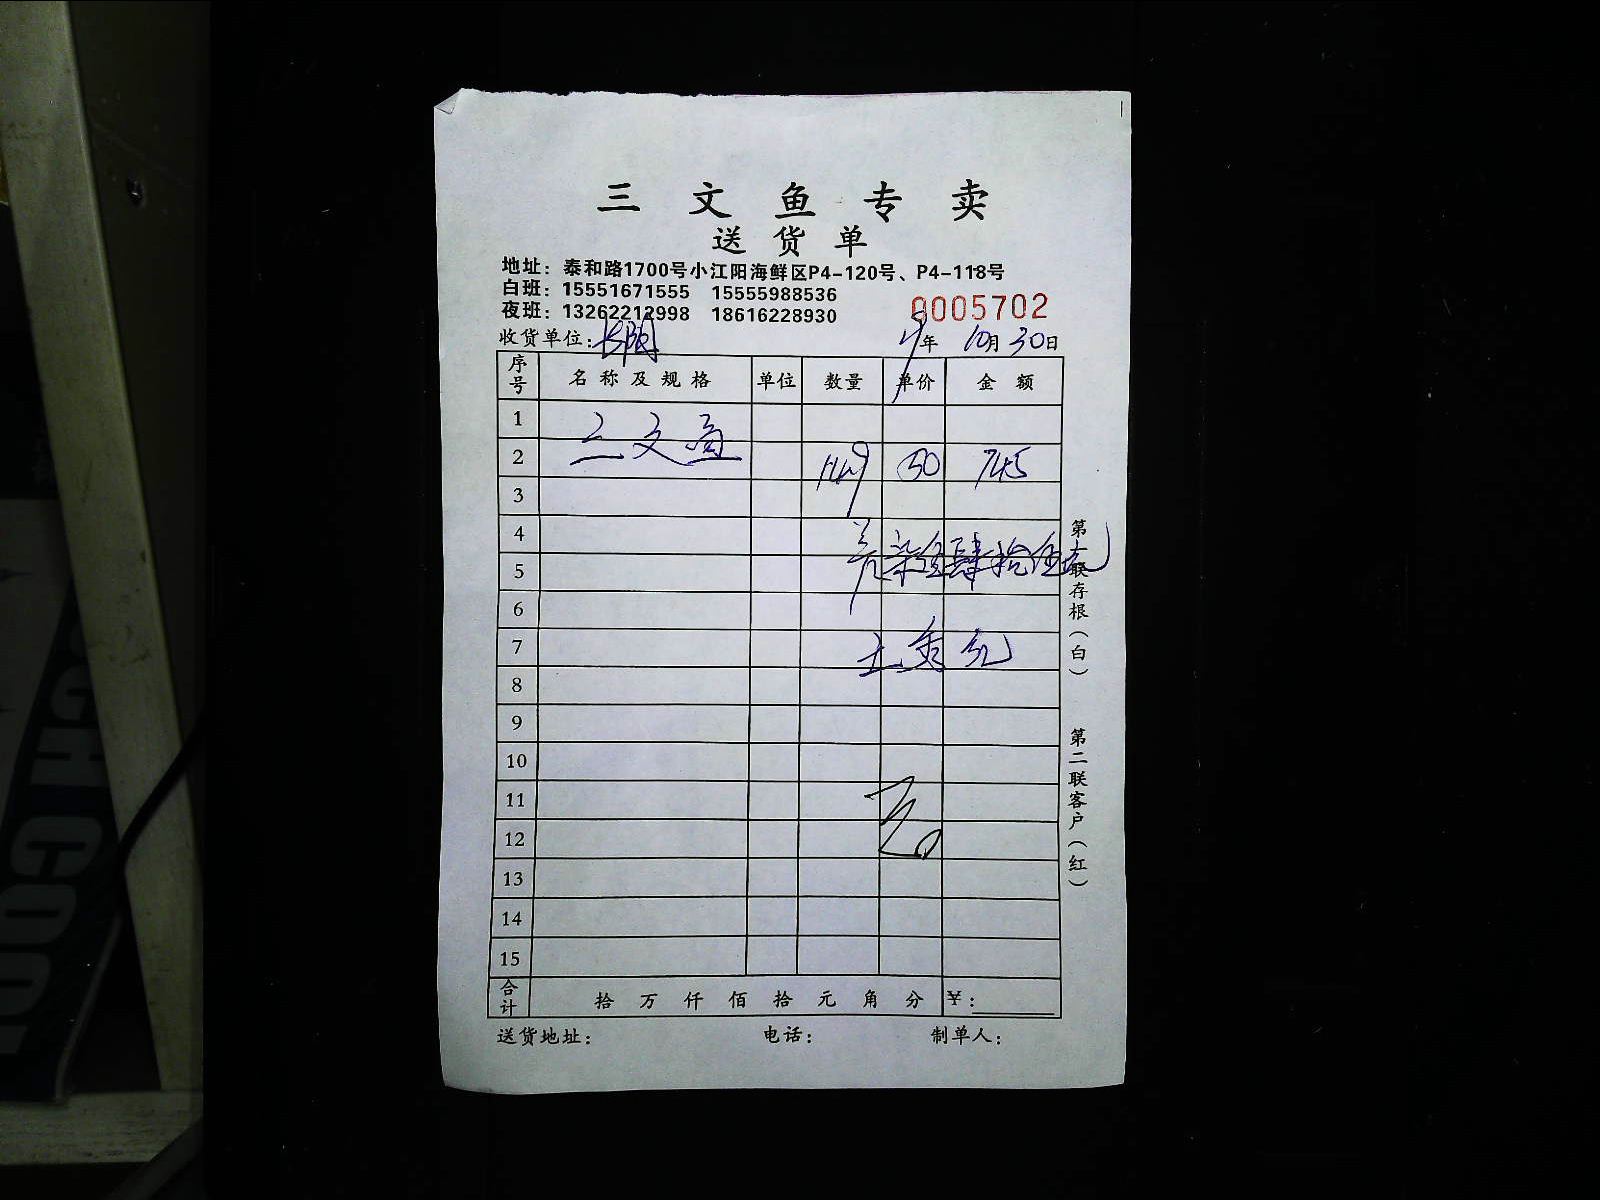 三文鱼专卖
送货单
地址：泰和路1700号小江阳海鲜区P4-120号、P4-118号
白班：15551671555 15555988536
夜班：13262212998 18616228930
0005702
收货单位： 年 10月30日
序号 名称及规格 单位 数量 单价 金额
1
三文鱼
2 50 745
3
4
柒佰肆拾伍元
5
6
7
8
9
10
11
12
13
14
15
合计 拾 万 仟 佰 拾 元 角 分 ￥：
送货地址： 电话： 制单人：
第一联存根（白）
第二联客户（红）